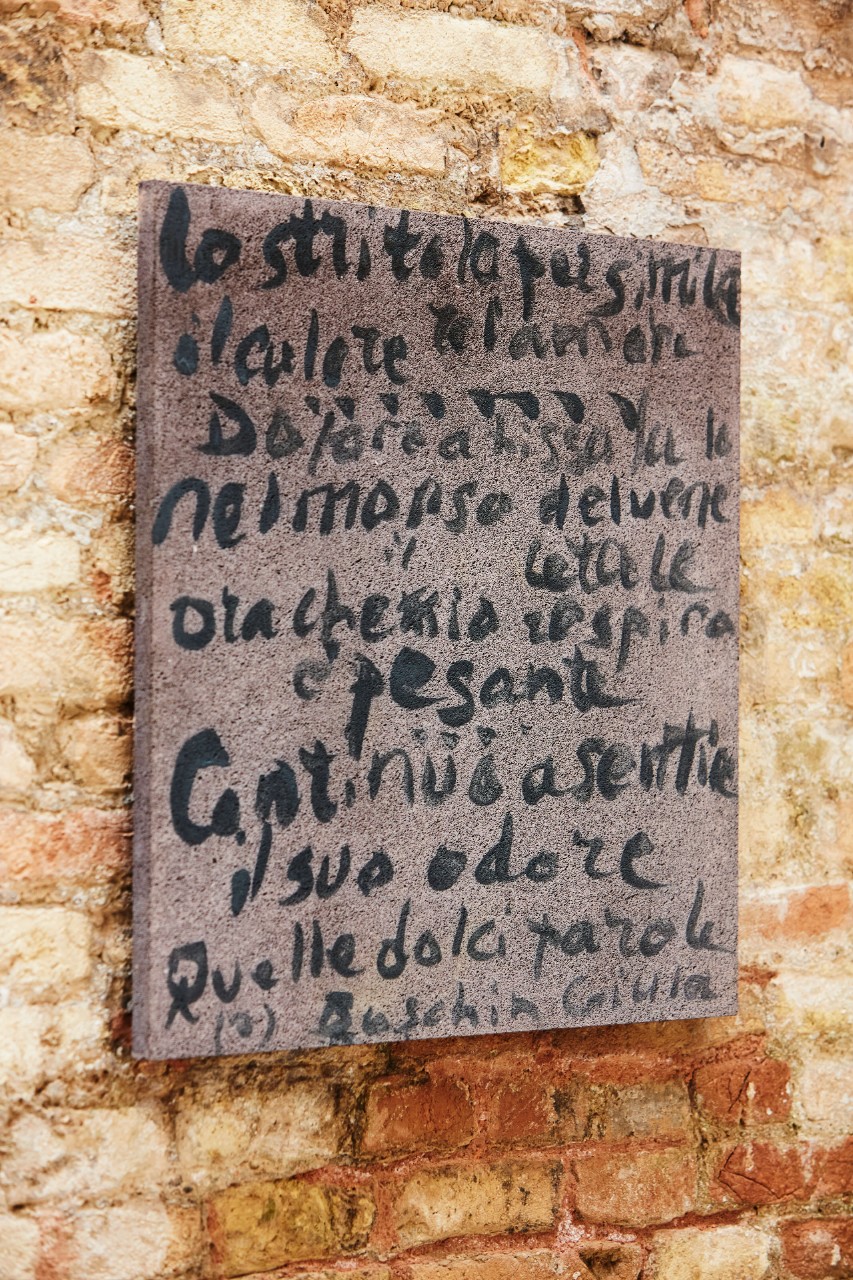 Lo stritola per simile
il calore
Dolore
nel morso del vene
il letale
ora che mio respira
è pesante
Continui a sentire
il suo odore
Quelle dolci parole
(2) Boschin Giulia